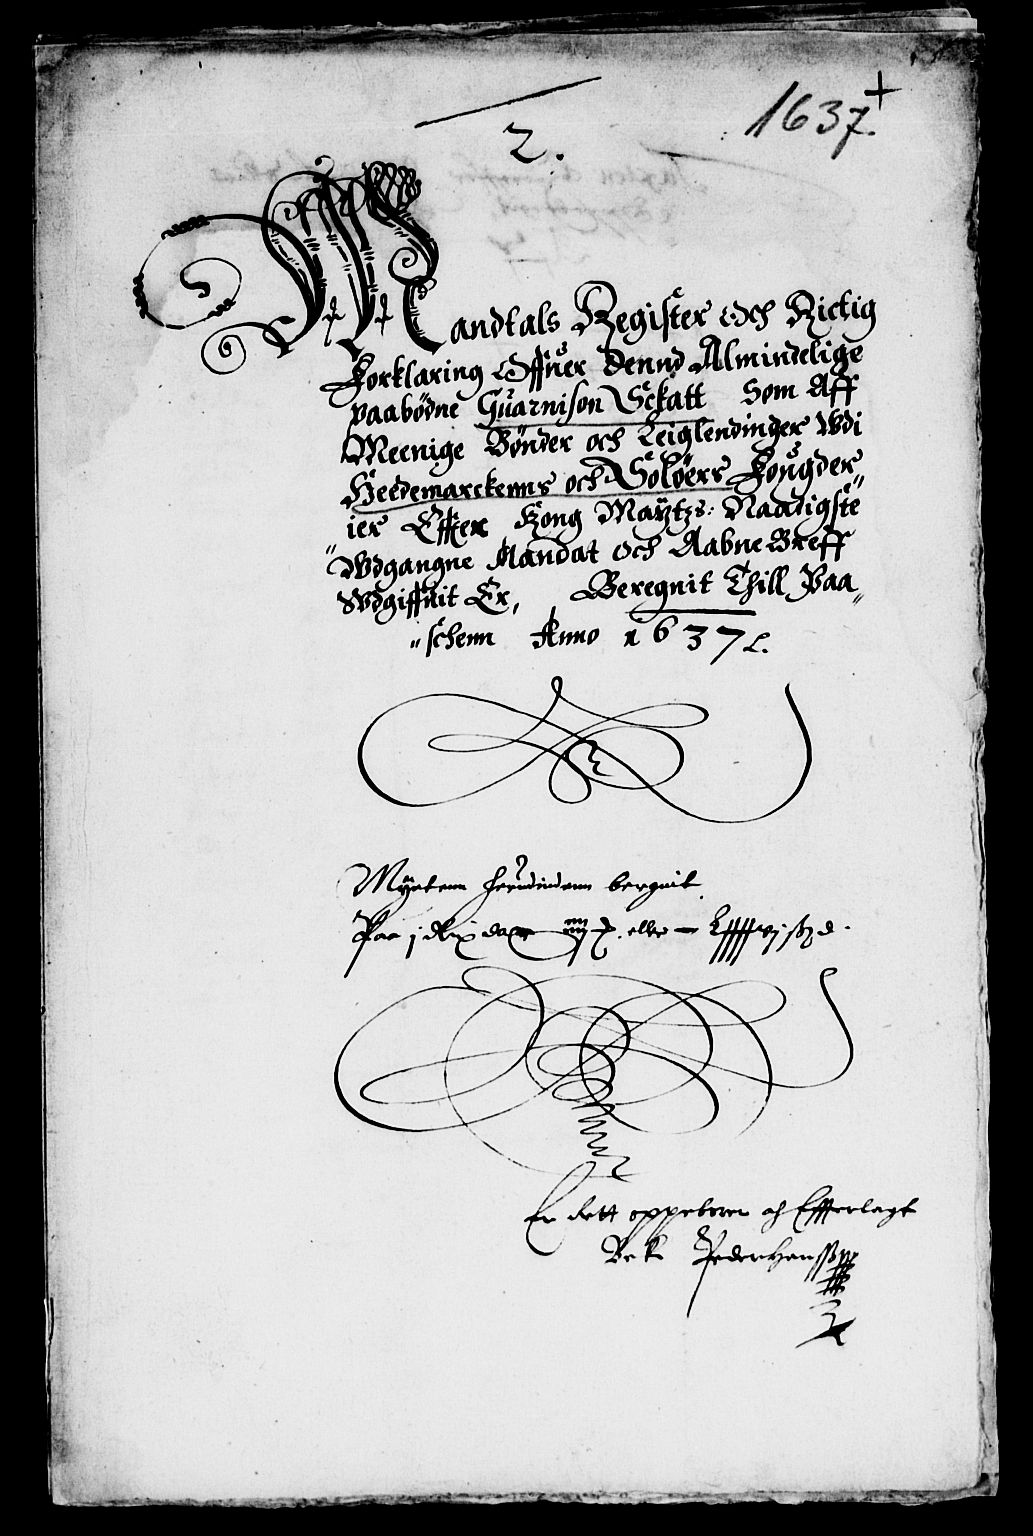 1637.
2.
Mandtals Register Och Rictig
Forklaring Offuer Dennd Almindelige
paabödne Guarnison Sckatt Som Aff
Meenige Bönder och Leiglendinger Wdi
Heedemarckenns och Solöers Fougder„
„ier Effter Kong Maÿtzs: Naadigste
Wdgangne Mandat Och Aabne Breff
Wdgiffuit Er, Beregnit Thill Paa„
„schenn Anno 1637
Beregnit
Paa j Rix daler eller
Er dett oppeboren och Effterlagt
Peder Hanss